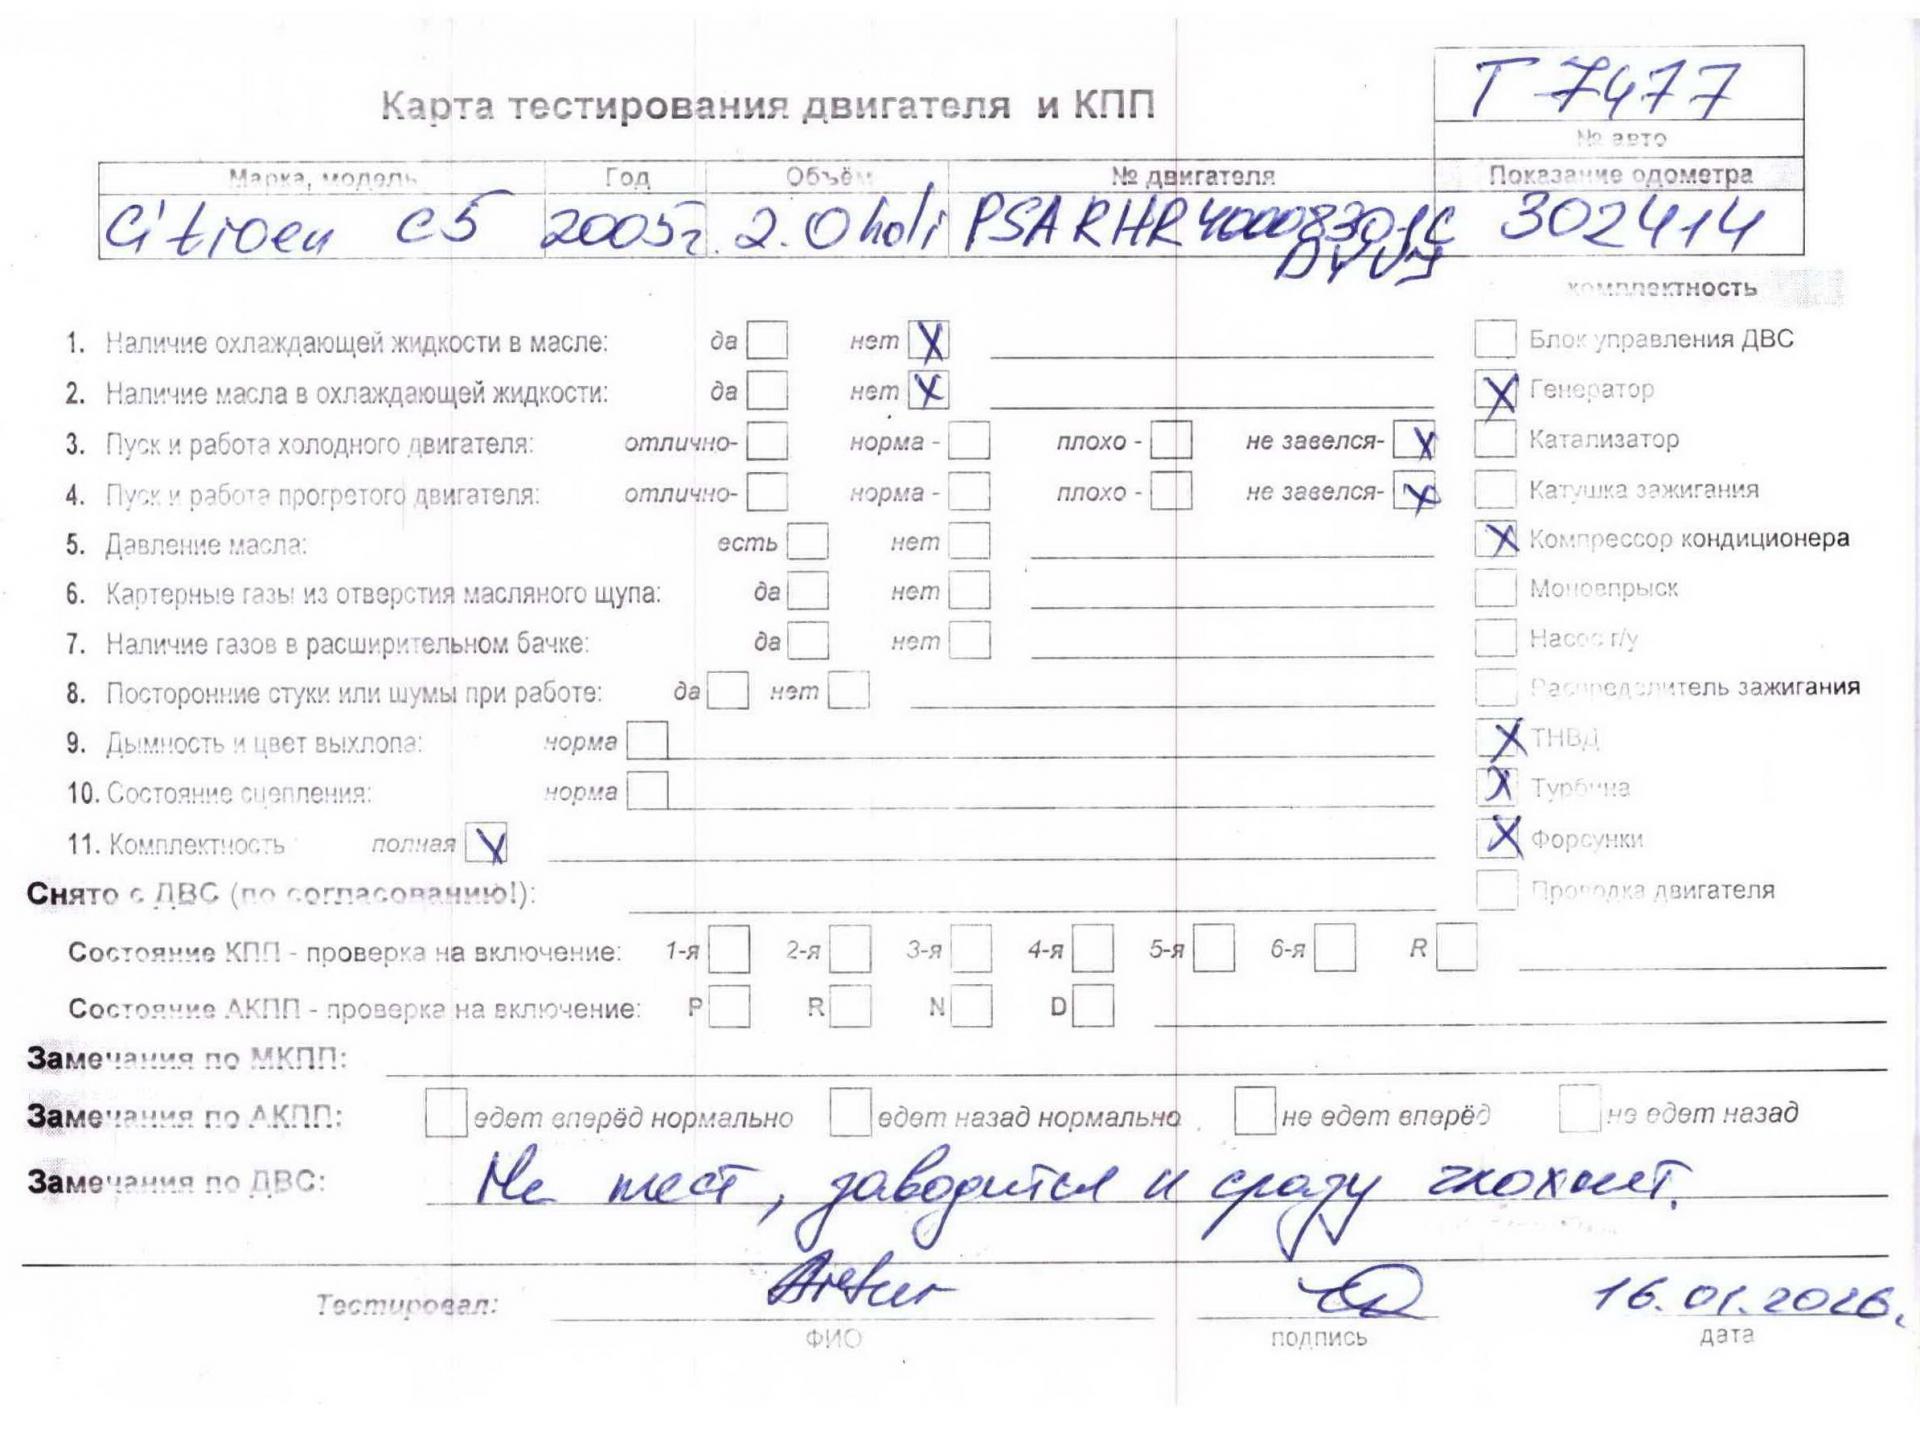 Т 7477
Карта тестирования двигателя и КПП
№ авто
Марка, модель Год Объём № двигателя Показание одометра
Citroen C5 2005г. 2.0 hdi PSA RHR 302414
комплектность
1. Наличие охлаждающей жидкости в масле: да нет X Блок управления ДВС
2. Наличие масла в охлаждающей жидкости: да нет X X Генератор
3. Пуск и работа холодного двигателя: отлично- норма - плохо - не завелся- X Катализатор
4. Пуск и работа прогретого двигателя: отлично- норма - плохо - не завелся- X Катушка зажигания
5. Давление масла: есть нет X Компрессор кондиционера
6. Картерные газы из отверстия масляного щупа: да нет Моновпрыск
7. Наличие газов в расширительном бачке: да нет Насос г/у
8. Посторонние стуки или шумы при работе: да нет Распределитель зажигания
9. Дымность и цвет выхлопа: норма X ТНВД
10. Состояние сцепления: норма X Турбина
11. Комплектность полная X X Форсунки
Снято с ДВС (по согласованию!): Проводка двигателя
Состояние КПП - проверка на включение: 1-я 2-я 3-я 4-я 5-я 6-я R
Состояние АКПП - проверка на включение: P R N D
Замечания по МКПП:
Замечания по АКПП: едет вперёд нормально едет назад нормально не едет вперёд не едет назад
Замечания по ДВС: Не тест, заводится и сразу глохнет.
Тестировал: Artur 16.01.2026.
ФИО подпись дата